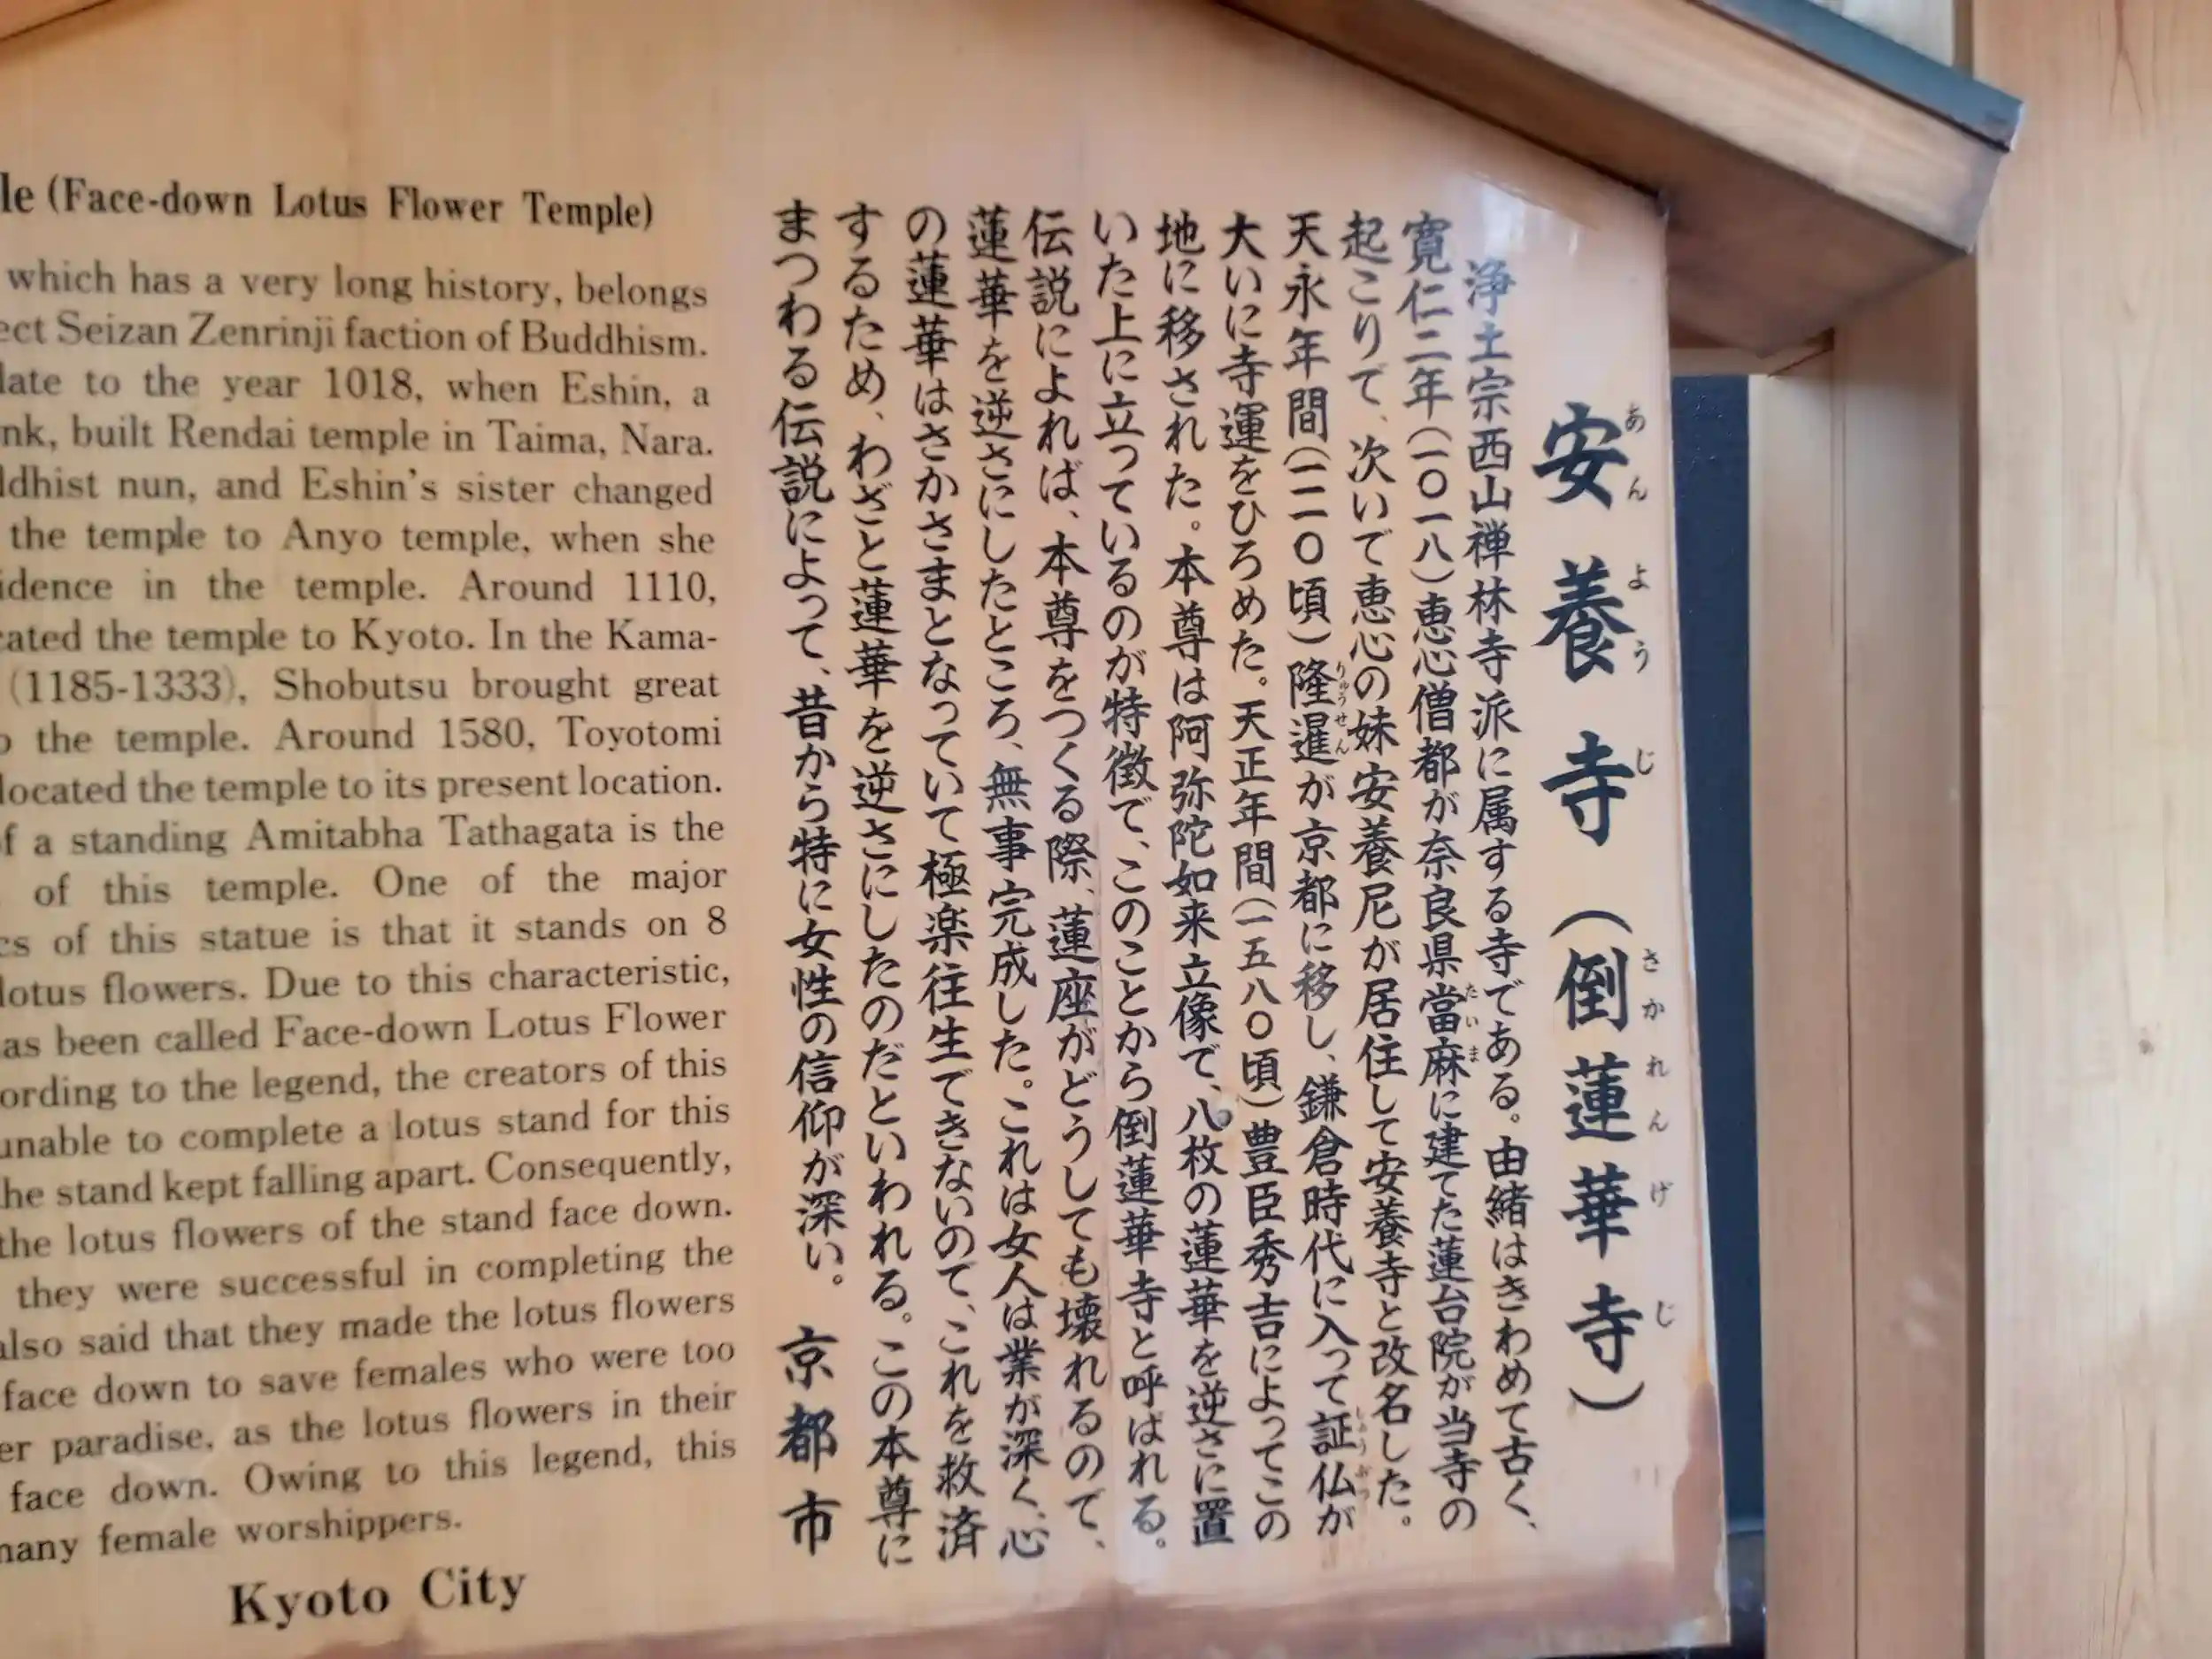 le (Face-down Lotus Flower Temple)
which has a very long history, belongs
ect Seizan Zenrinji faction of Buddhism.
late to the year 1018, when Eshin, a
nk, built Rendai temple in Taima, Nara.
ldhist nun, and Eshin's sister changed
the temple to Anyo temple, when she
idence in the temple. Around 1110,
cated the temple to Kyoto. In the Kama-
(1185-1333), Shobutsu brought great
o the temple. Around 1580, Toyotomi
located the temple to its present location.
of a standing Amitabha Tathagata is the
of this temple. One of the major
cs of this statue is that it stands on 8
lotus flowers. Due to this characteristic,
as been called Face-down Lotus Flower
ording to the legend, the creators of this
unable to complete a lotus stand for this
he stand kept falling apart. Consequently,
the lotus flowers of the stand face down.
they were successful in completing the
also said that they made the lotus flowers
face down to save females who were too
er paradise, as the lotus flowers in their
face down. Owing to this legend, this
many female worshippers.
Kyoto City
安養寺（倒蓮華寺）
あんようじ さかれんげじ
浄土宗西山禅林寺派に属する寺である。由緒はきわめて古く、
寛仁二年（一〇一八）恵心僧都が奈良県當麻に建てた蓮台院が当寺の
たいま
起こりで、次いで恵心の妹安養尼が居住して安養寺と改名した。
天永年間（一一一〇頃）隆暹が京都に移し、鎌倉時代に入って証仏が
りゅうせん しょうぶつ
大いに寺運をひろめた。天正年間（一五八〇頃）豊臣秀吉によってこの
地に移された。本尊は阿弥陀如来立像で、八枚の蓮華を逆さに置
いた上に立っているのが特徴で、このことから倒蓮華寺と呼ばれる。
伝説によれば、本尊をつくる際、蓮座がどうしても壊れるので、
蓮華を逆さにしたところ、無事完成した。これは女人は業が深く、心
の蓮華はさかさまとなっていて極楽往生できないので、これを救済
するため、わざと蓮華を逆さにしたのだといわれる。この本尊に
まつわる伝説によって、昔から特に女性の信仰が深い。 京都市